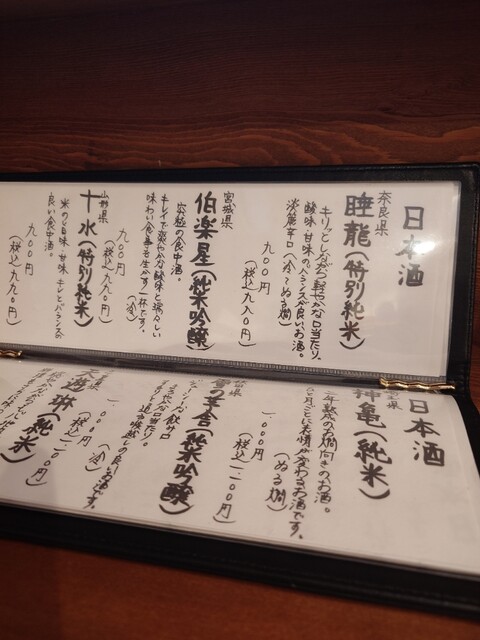 日本酒
奈良県
睡龍(特別純米)
キリッとしながら軽やかな口当たり。
酸味 甘味のバランスが良いお酒。
淡麗辛口(冷〜ぬる燗)
九〇〇円
(税込九九〇円)
宮城県
伯楽星(純米吟醸)
究極の食中酒。
キレイで爽やかな酸味と瑞々しい
味わい 食事を生かす一杯です。
(冷)
九〇〇円
(税込九九〇円)
山形県
十水(特別純米)
米のうま味 甘味 キレとバランスが
良い食中酒。
九〇〇円
(税込九九〇円)
日本酒
県
神亀(純米)
年熟成の燗向きのお酒。
ごとに表情が変わるお酒です。
(ぬる燗)
一、〇〇〇円
(税込一、一〇〇円)
県
舎(純米吟醸)
飲み口
やかな口当たり。
喉越しの良い
お酒です。
(冷)
〇〇〇円
(税込一、一〇〇円)
県
天遊琳(純米)